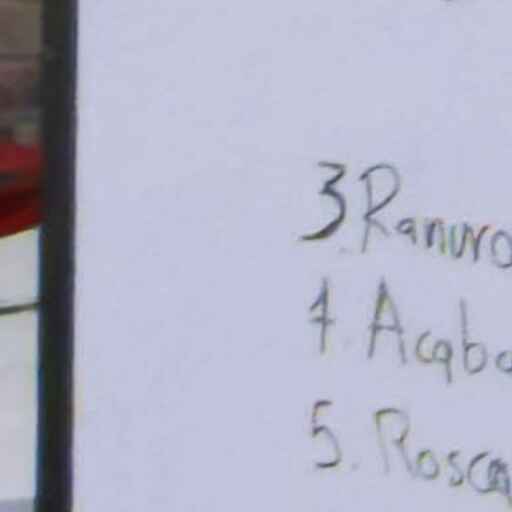 3. Ranuro
4. Acabo
5. Rosca